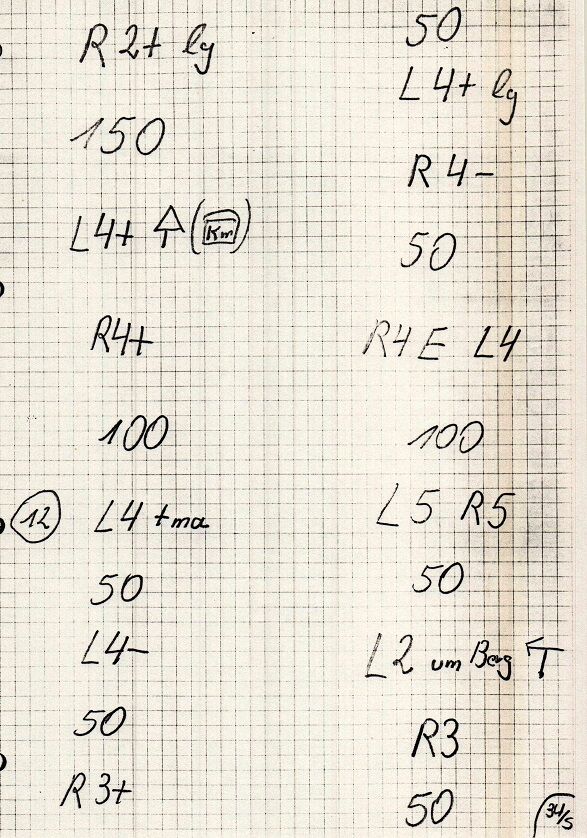 R2+ lg
150
L4+ (Km)
R4+
100
12 L4 +ma
50
L4-
50
R3+
50
L4+ lg
R4-
50
R4 E L4
100
L5 R5
50
L2 um Berg
R3
50
34/5